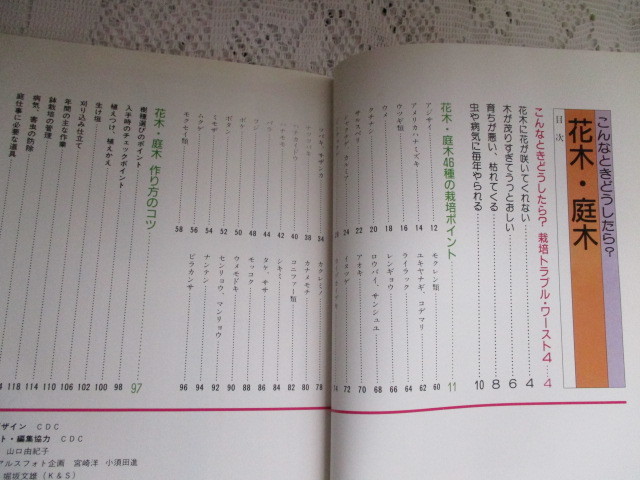 こんなときどうしたら?
花木・庭木
目次
こんなときどうしたら? 栽培トラブル・ワースト4…4
花木に花が咲いてくれない 4
木が茂りすぎてうっとおしい 6
育ちが悪い、枯れてくる 8
虫や病気に毎年やられる 10
花木・庭木46種の栽培ポイント 11
アジサイ 12
アメリカハナミズキ 14
ウツギ類 16
ウメ 18
クチナシ 20
サルスベリ 22
ツバキ、サザンカ 34
36
38
40
42
バラ 44
フジ 48
ボケ 50
ボタン 52
ミモザ 54
ムクゲ 56
モクセイ類 58
モクレン類 60
ユキヤナギ、コデマリ 62
ライラック 64
レンギョウ 66
ロウバイ、サンシュユ 68
アオキ 70
72
74
カクレミノ 78
カナメモチ 80
コニファー類 82
シキミ 84
タケ、ササ 86
モッコク 88
ウメモドキ 90
センリョウ、マンリョウ 92
ナンテン 94
ピラカンサ 96
花木・庭木 作り方のコツ 97
樹種選びのポイント
入手時のチェックポイント 98
植えつけ、植えかえ 100
生け垣 102
刈り込み仕立て 106
年間の主な作業 110
鉢栽培の管理 114
病気、害虫の防除 118
庭仕事に必要な道具
ザイン CDC
ト・編集協力 CDC
山口由紀子
アルスフォト企画 宮崎洋 小須田進
堀坂文雄(K&S)